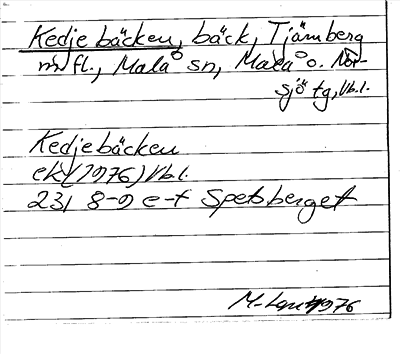 Kedjebäcken, bäck, Tjämberg
m fl., Malå sn, Malå o. Nor-
sjö tg, Vb.l.
Kedjebäcken
ek (1976) Vb.l.
23I 8-9 e-f Spetsberget
1976